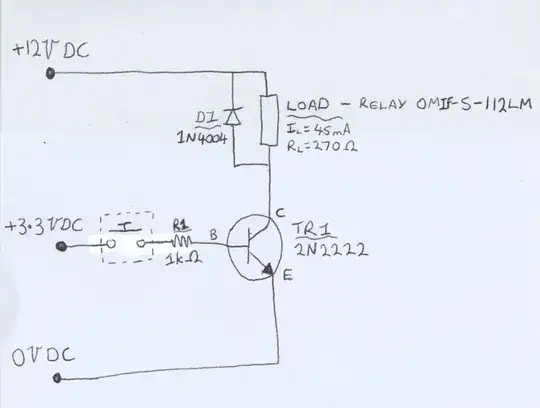 +12V DC
LOAD - RELAY OMIF-S-112LM
IL=45mA
RL=270Ω
D1
1N4004
+3.3VDC
R1
1kΩ
B
C
TR1
2N2222
E
0VDC